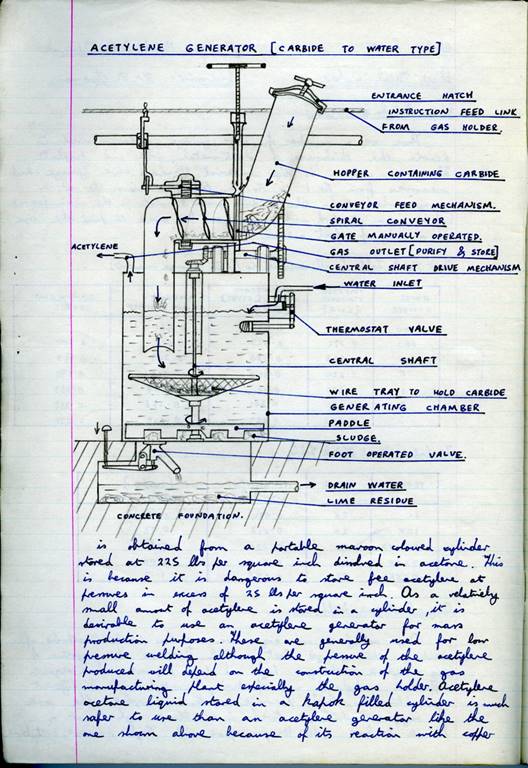 ACETYLENE GENERATOR [CARBIDE TO WATER TYPE]
ENTRANCE HATCH
INSTRUCTION FEED LINK
FROM GAS HOLDER.
HOPPER CONTAINING CARBIDE
CONVEYOR FEED MECHANISM.
SPIRAL CONVEYOR
GATE MANUALLY OPERATED.
ACETYLENE
GAS OUTLET [PURIFY & STORE]
CENTRAL SHAFT DRIVE MECHANISM
WATER INLET
THERMOSTAT VALVE
CENTRAL SHAFT
WIRE TRAY TO HOLD CARBIDE
GENERATING CHAMBER
PADDLE
SLUDGE.
FOOT OPERATED VALVE.
DRAIN WATER
LIME RESIDUE
CONCRETE FOUNDATION.
is obtained from a portable maroon coloured cylinder
stored at 225 lbs per square inch disolved in acetone. This
is because it is dangerous to store free acetylene at
pressures in excess of 25 lbs per square inch. As a relatively
small amount of acetylene is stored in a cylinder, it is
desirable to use an acetylene generator for mass
production purposes. These are generally used for low
pressure welding although the pressure of the acetylene
produced will depend on the construction of the gas
manufacturing plant especially the gas holder. Acetylene
acetone liquid stored in a kapok filled cylinder is much
safer to use than an acetylene generator like the
one shown above because of its reaction with copper